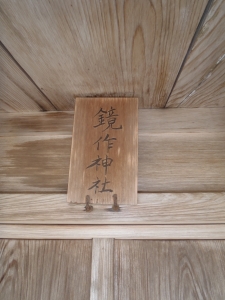 鏡作神社